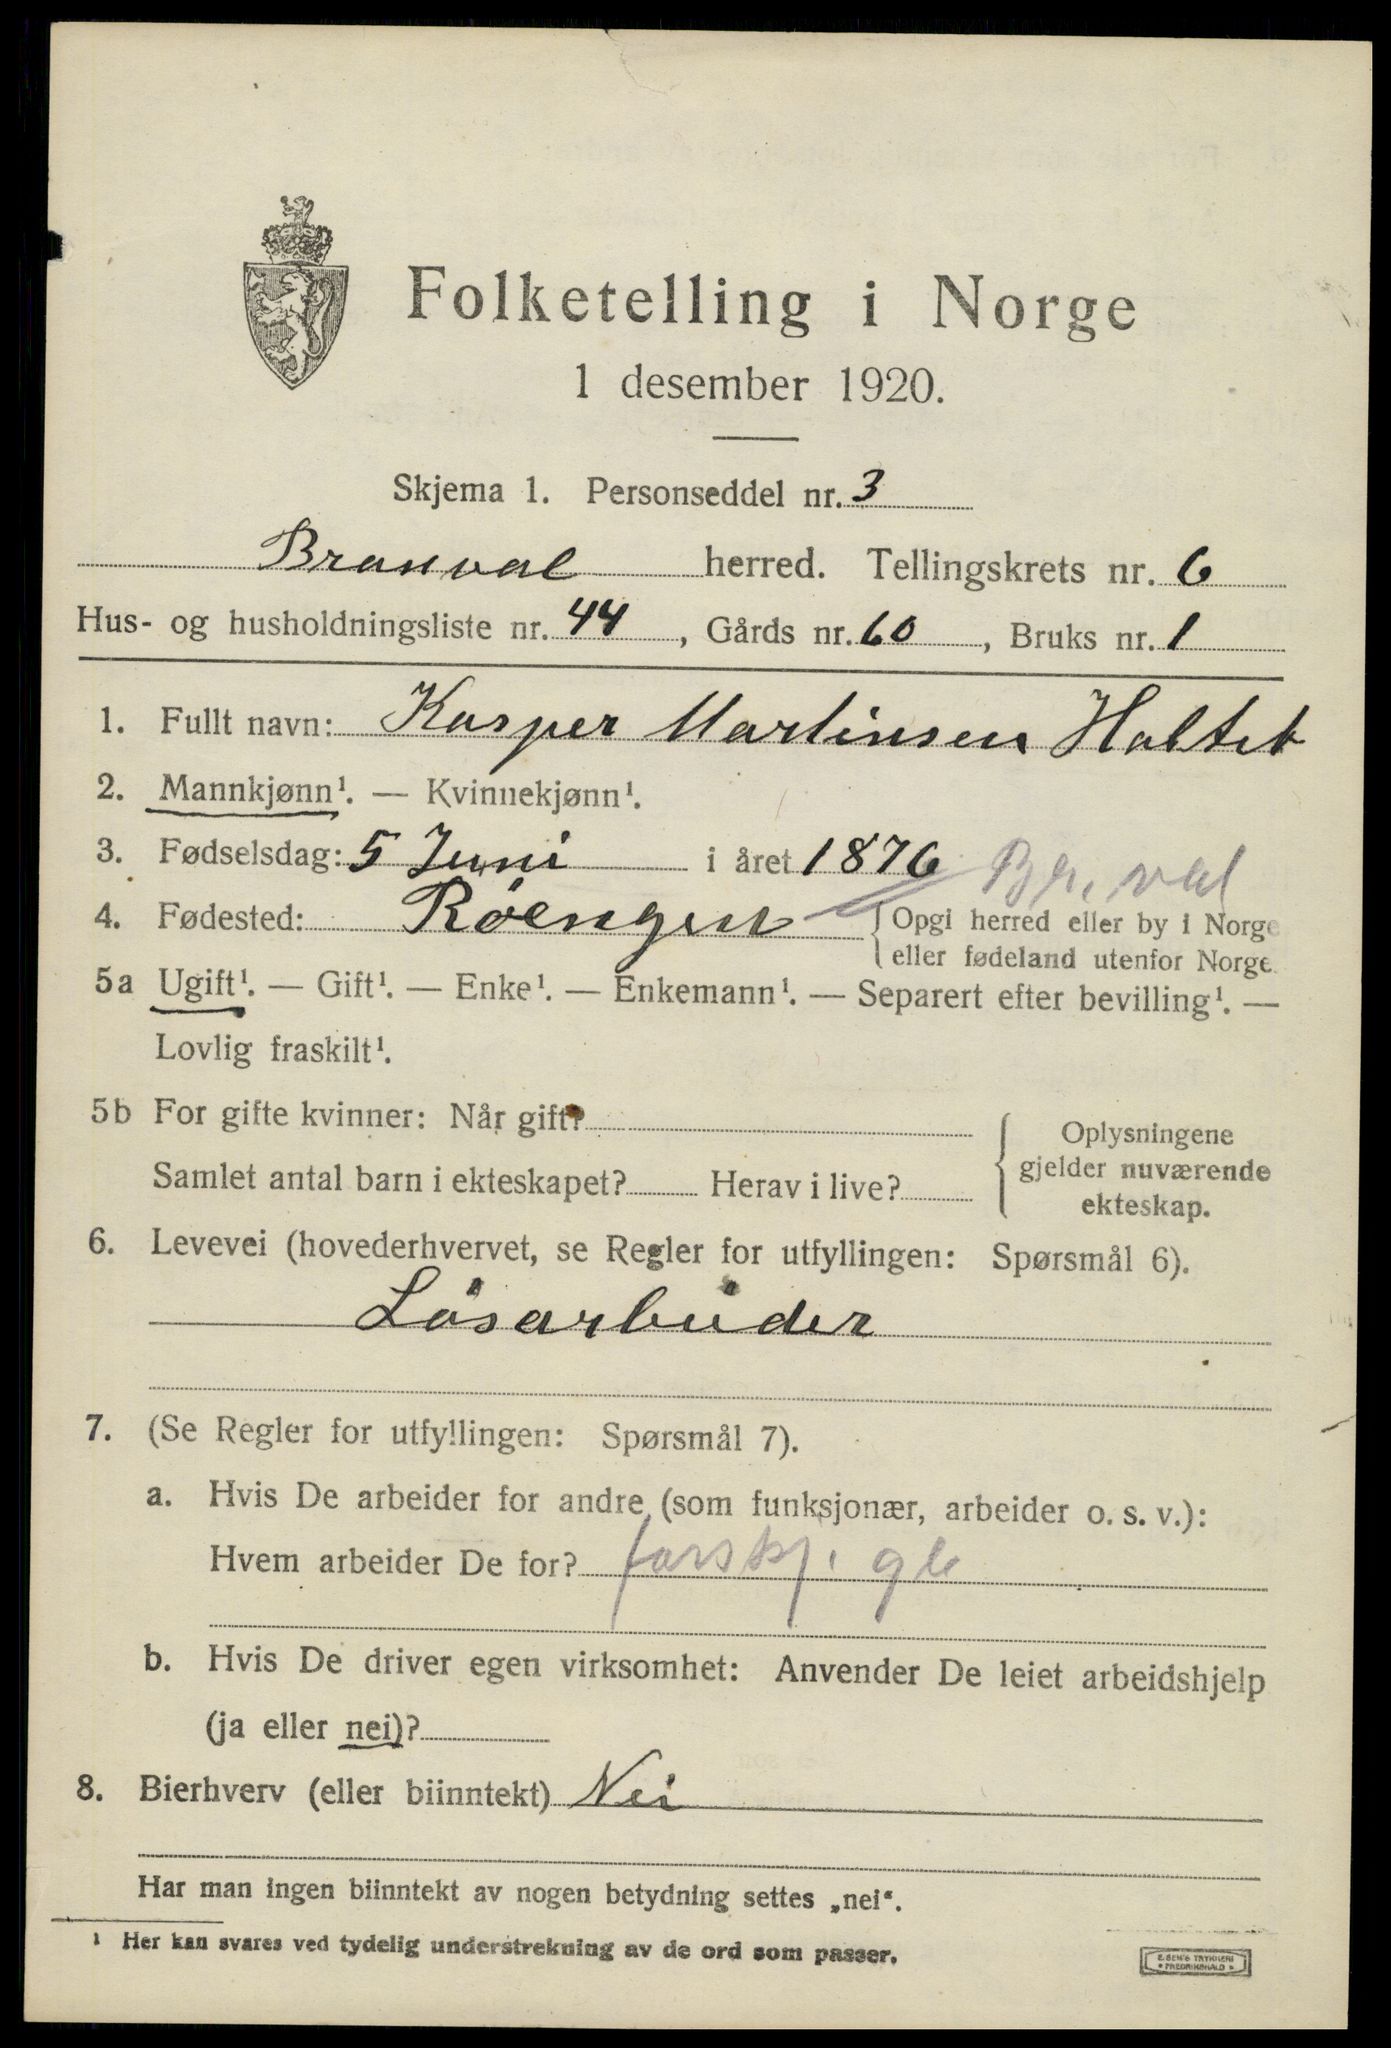 Folketelling i Norge
1 desember 1920.
Skjema 1. Personseddel nr. 3
Branval herred. Tellingskrets nr. 6
Hus- og husholdningsliste nr. 44, Gårds nr. 60, Bruks nr. 1
1. Fullt navn: Kasper Martinsen Holtet
2. Mannkjønn¹. — Kvinnekjønn¹.
3. Fødselsdag: 5 Juni i året 1876 Br. val
4. Fødested: Röengen { Opgi herred eller by i Norge
eller fødeland utenfor Norge.
5a Ugift¹. — Gift¹. — Enke¹. — Enkemann¹. — Separert efter bevilling¹. —
Lovlig fraskilt¹.
5b For gifte kvinner: Når gift?
Samlet antal barn i ekteskapet? Herav i live?
Oplysningene
gjelder nuværende
ekteskap.
6. Levevei (hovederhvervet, se Regler for utfyllingen: Spørsmål 6).
Lösarbeider
7. (Se Regler for utfyllingen: Spørsmål 7).
a. Hvis De arbeider for andre (som funksjonær, arbeider o. s. v.):
Hvem arbeider De for? forskj.
b. Hvis De driver egen virksomhet: Anvender De leiet arbeidshjelp
(ja eller nei)?
8. Bierhverv (eller biinntekt) Nei
Har man ingen biinntekt av nogen betydning settes „nei“.
¹ Her kan svares ved tydelig understrekning av de ord som passer.
E. SEM'S TRYKKERI
• FREDRIKSHALD •